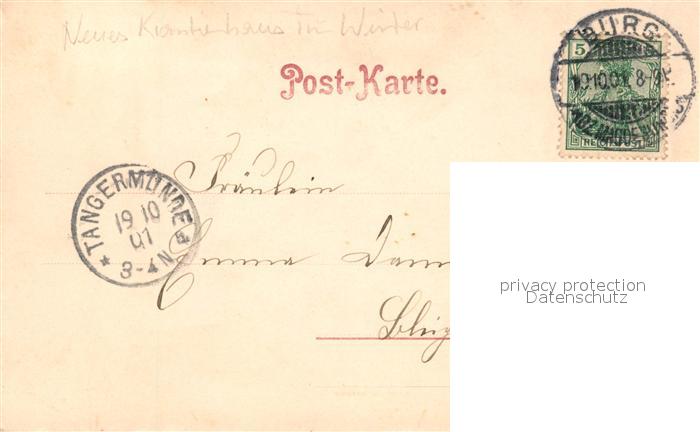 Neues Krankenhaus im Winter
BURG
5
19.10.01. 8-9V.
Post-Karte.
Fräulein
TANGERMÜNDE
19 10
01
* 3-4 N
Emma
privacy protection
Datenschutz